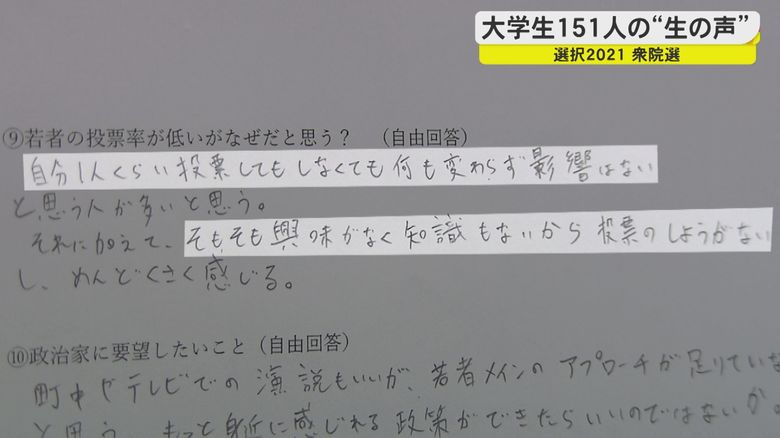 大学生151人の“生の声”
選択2021 衆院選
⑨若者の投票率が低いがなぜだと思う？ （自由回答）
自分1人くらい投票してもしなくても何も変わらず影響はない
と思う人が多いと思う。
それに加えて、そもそも興味がなく知識もないから投票のしようがない
し、めんどくさく感じる。
⑩政治家に要望したいこと（自由回答）
町中やテレビでの演説もいいが、若者メインのアプローチが足りていな
と思う。もっと身近に感じれる政策ができたらいいのではないか。